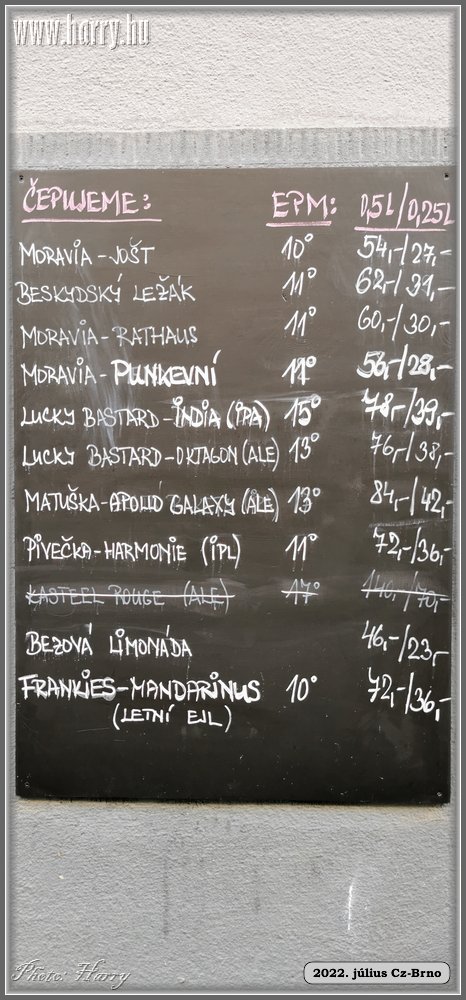 www.harry.hu
ČEPUJEME: EPM: 0,5L/0,25L
MORAVIA-JOŠT 10° 54,-/27,-
BESKYDSKÝ LEŽÁK 11° 62,-/31,-
MORAVIA-RATHAUS 11° 60,-/30,-
MORAVIA-PUNKEVNÍ 11° 56,-/28,-
LUCKY BASTARD-INDIA (IPA) 15° 78,-/39,-
LUCKY BASTARD-OKTAGON (ALE) 13° 76,-/38,-
MATUŠKA-APOLLO GALAXY (ALE) 13° 84,-/42,-
PIVEČKA-HARMONIE (IPL) 11° 72,-/36,-
KASTEEL ROUGE (ALE) 17° 140,-/70,-
BEZOVÁ LIMONÁDA 46,-/23,-
FRANKIES-MANDARINUS 10° 72,-/36,-
(LETNÍ EJL)
Photo: Harry
2022. július Cz-Brno